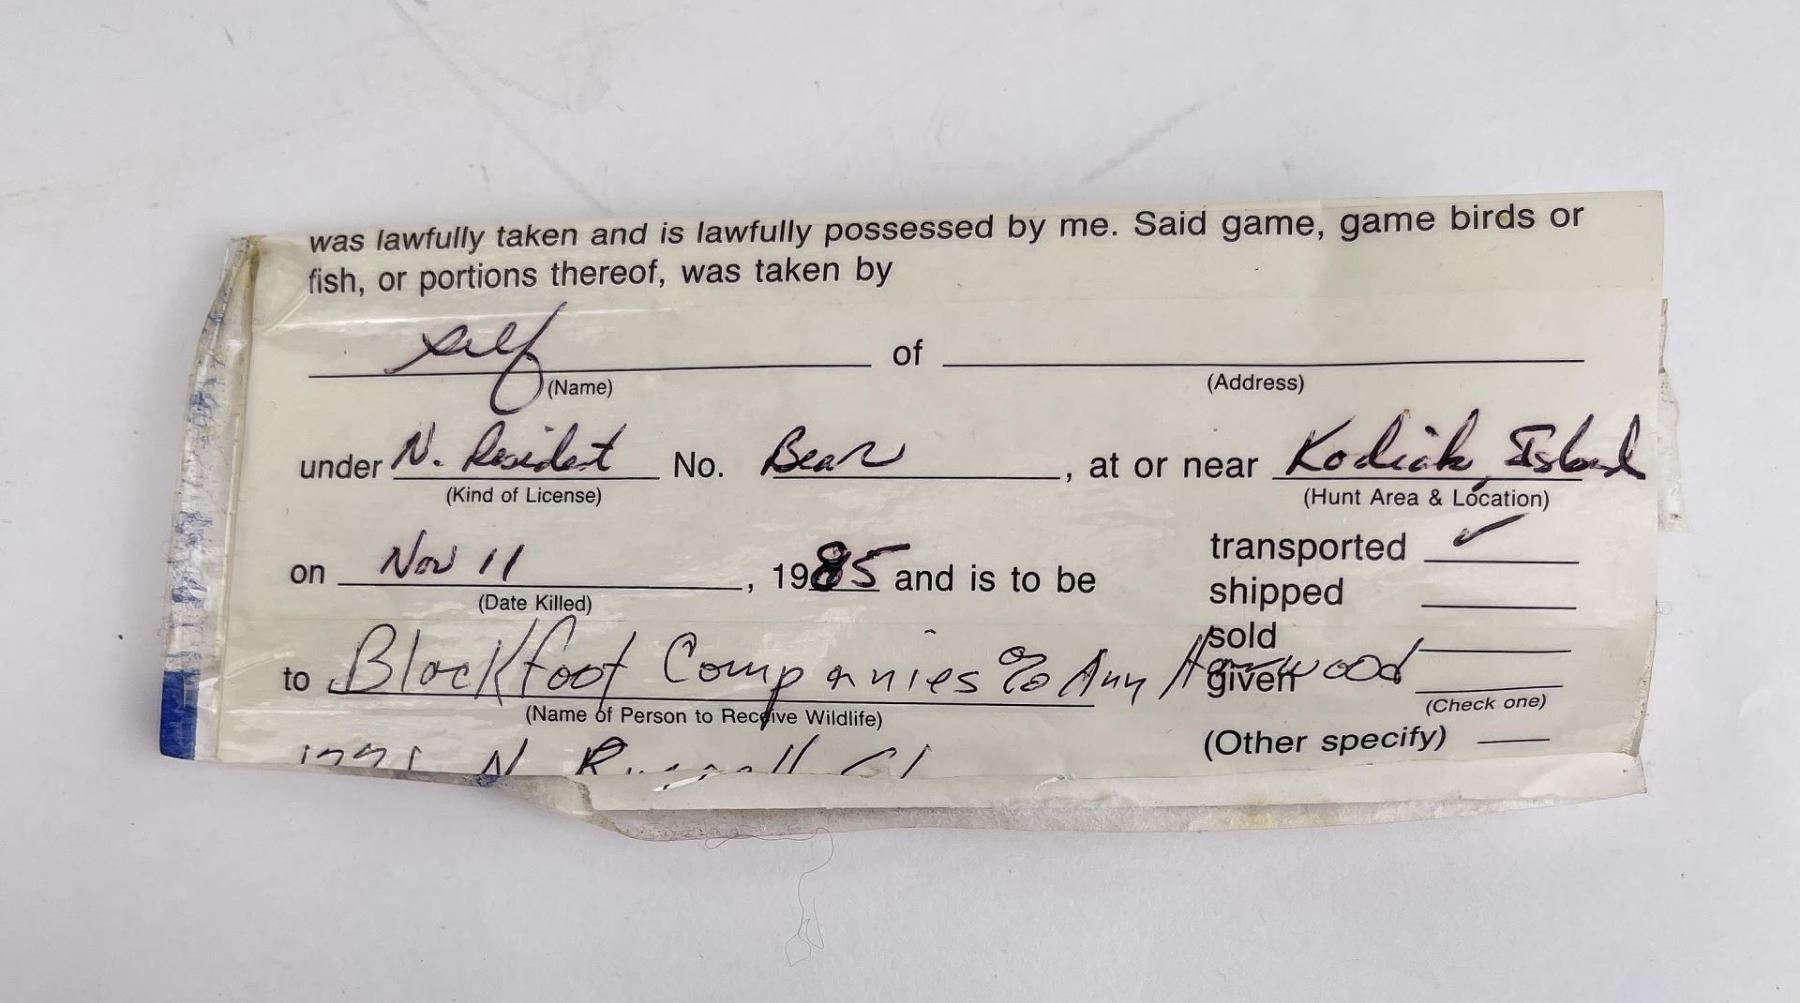 was lawfully taken and is lawfully possessed by me. Said game, game birds or
fish, or portions thereof, was taken by
self of
(Name) (Address)
under N. Resident No. Bear, at or near Kodiak Island
(Kind of License) (Hunt Area & Location)
on Nov 11, 1985 and is to be
(Date Killed)
transported ✓
shipped
sold
given
(Check one)
to Blackfoot Companies % Ann
(Name of Person to Receive Wildlife)
(Other specify)
N. Russell